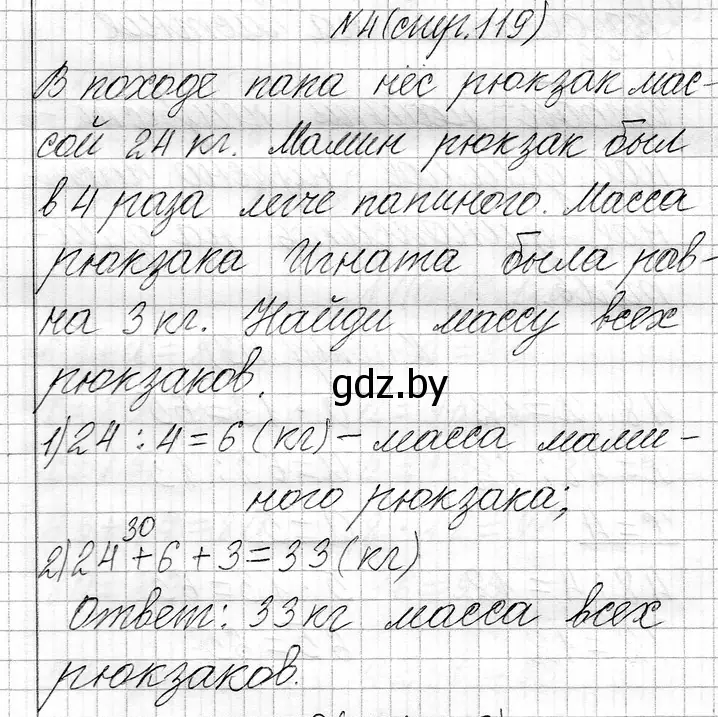 N4(стр.119)
В походе папа нёс рюкзак мас-
сой 24 кг. Мамин рюкзак был
в 4 раза легче папиного. Масса
рюкзака Игната была рав-
на 3 кг. Найди массу всех
рюкзаков.
gdz.by
1) 24 : 4 = 6 (кг) - масса мами-
ного рюкзака;
30
2) 24 + 6 + 3 = 33 (кг)
Ответ: 33 кг масса всех
рюкзаков.